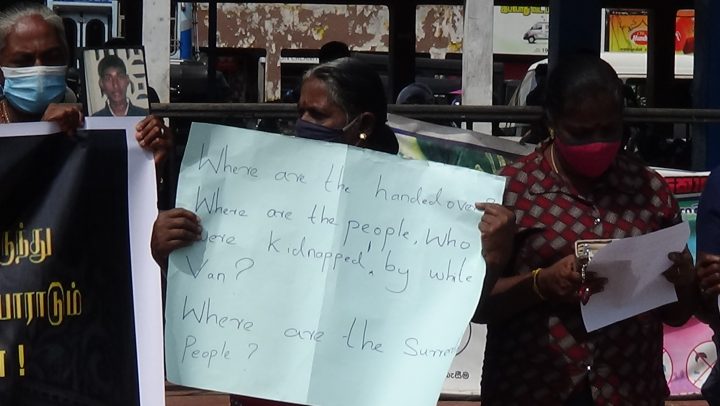 Where are the handed over?
Where are the people, who
were kidnapped, by white
Van?
Where are the Surren
People?
ாராடும்
!